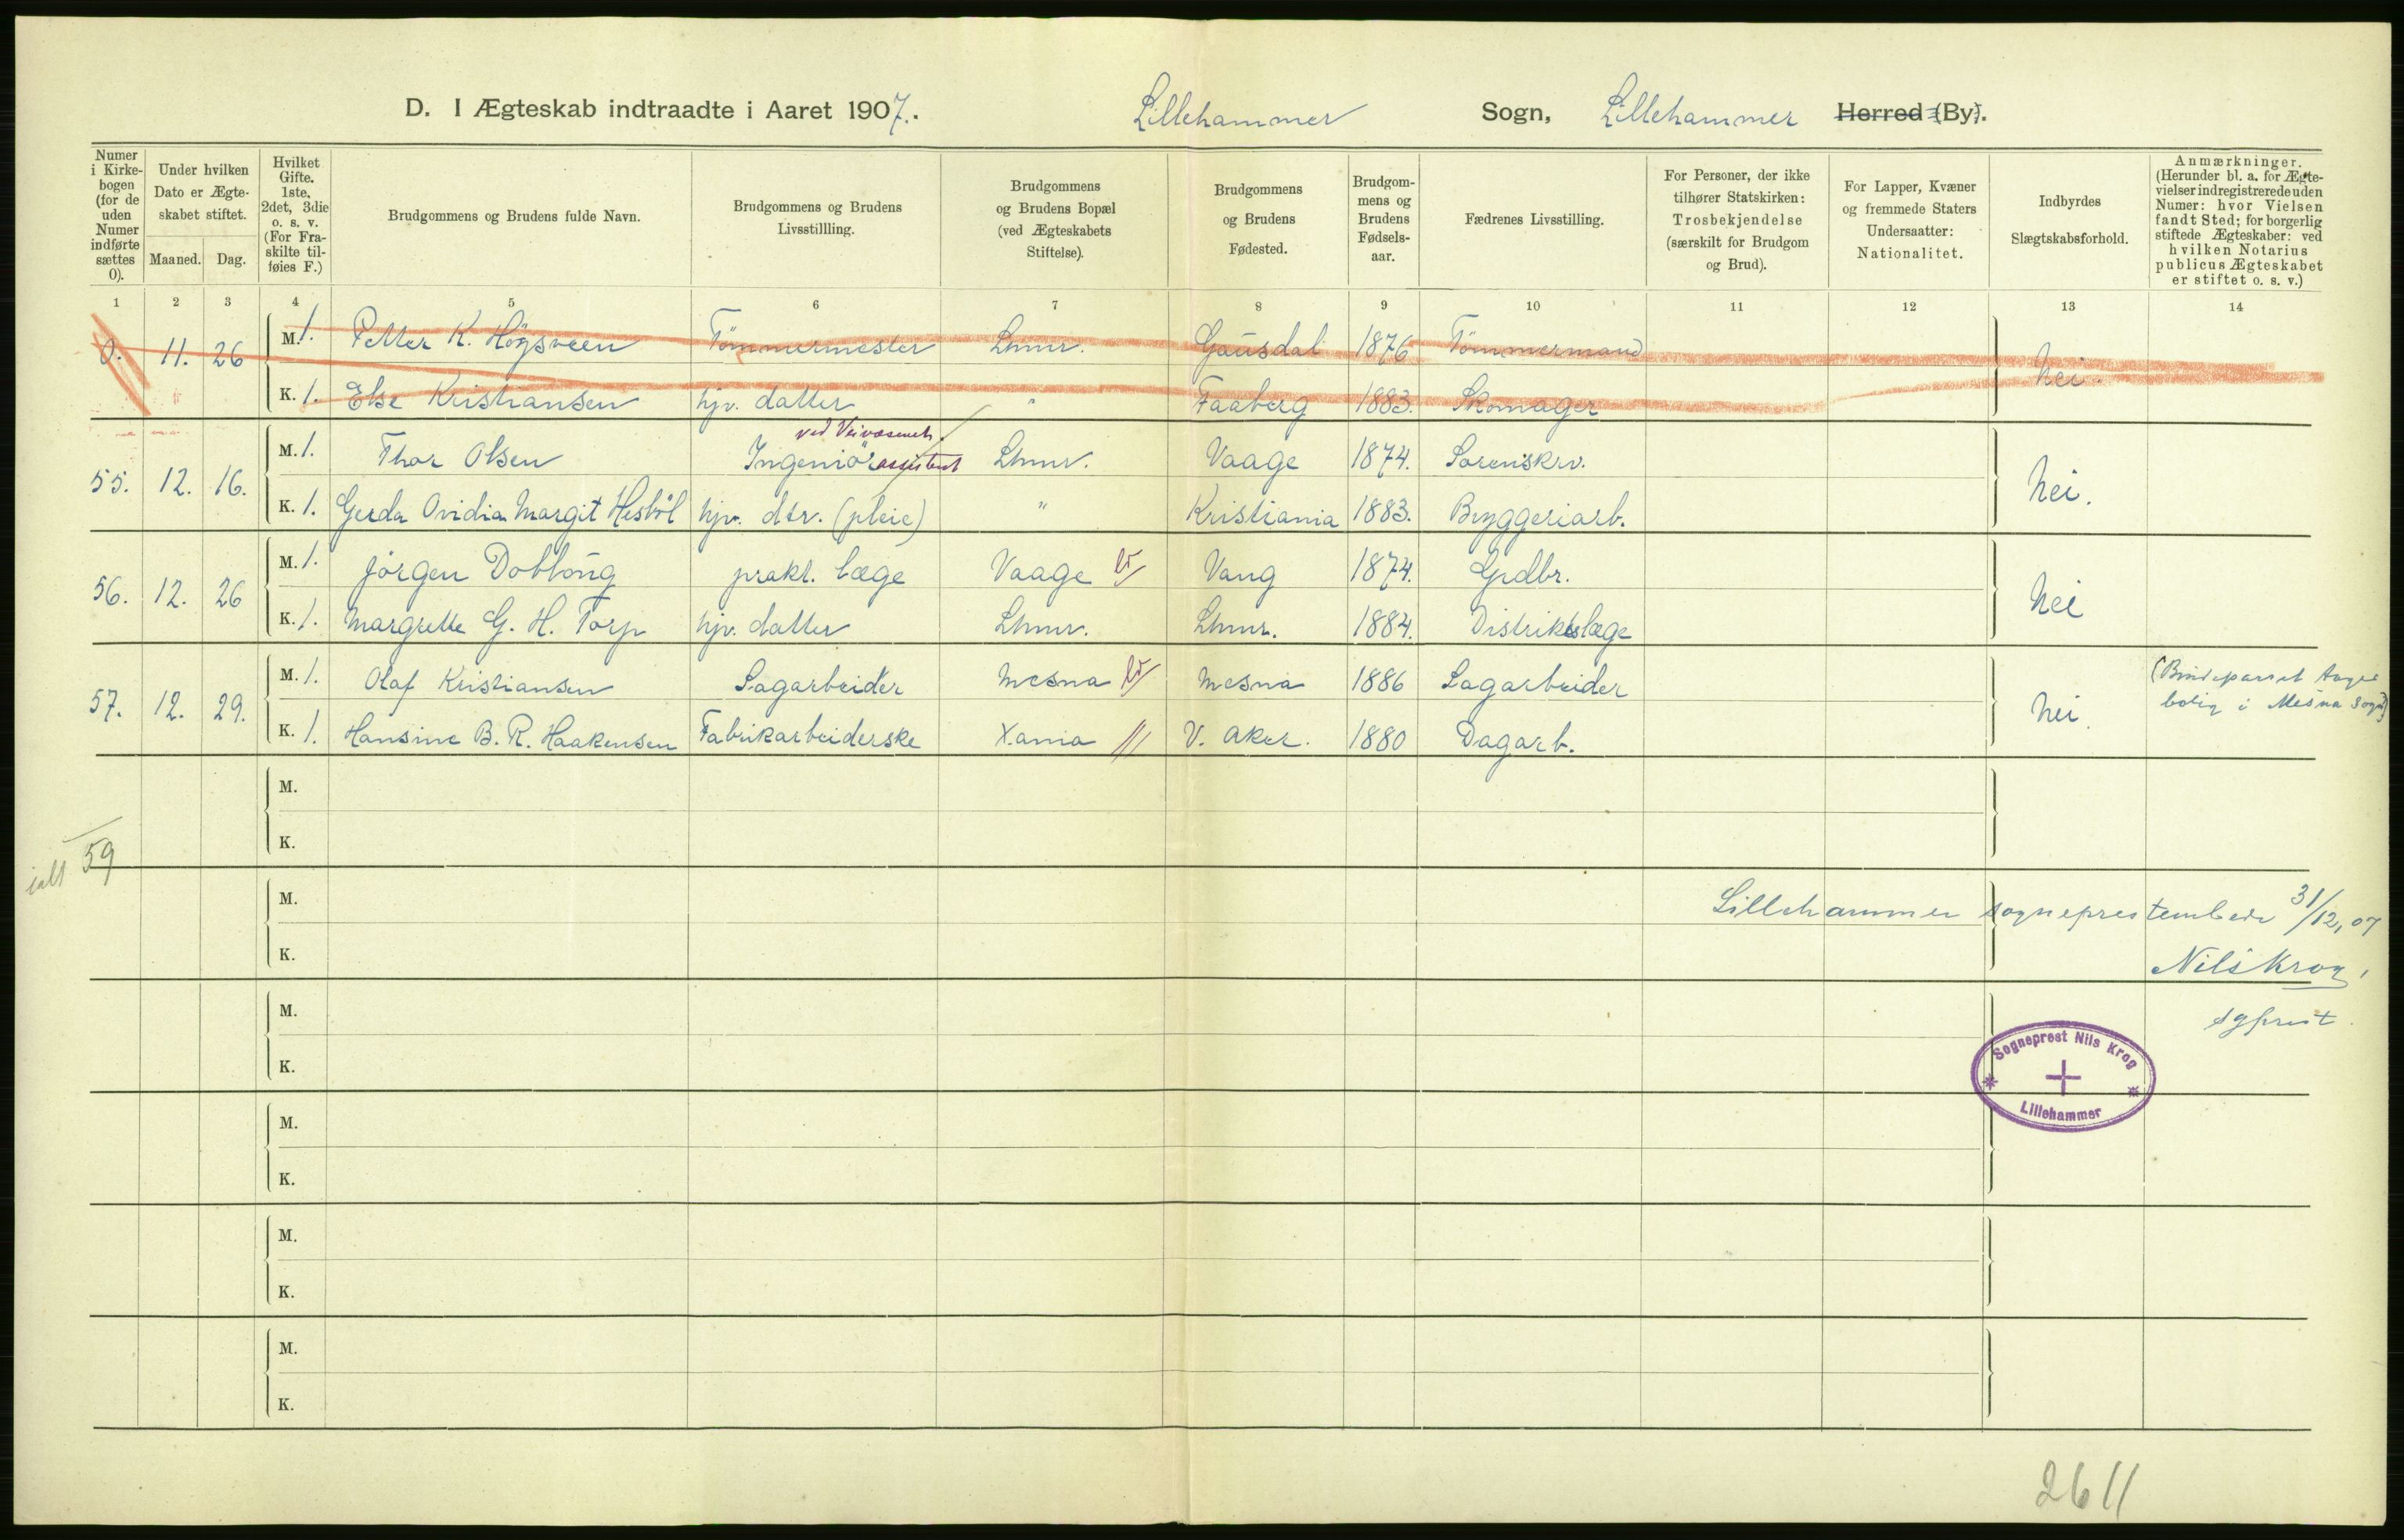 D. I Ægteskab indtraadte i Aaret 1907. Lillehammer Sogn, Lillehammer Herred (By).
Numer i Kirkebogen (for de uden Numer indførte sættes 0).
Under hvilken Dato er Ægteskabet stiftet.
Maaned. Dag.
Hvilket Gifte. 1ste, 2det, 3die o. s. v. (For Fraskilte tilføies F.)
Brudgommens og Brudens fulde Navn.
Brudgommens og Brudens Livsstillling.
Brudgommens og Brudens Bopæl (ved Ægteskabets Stiftelse).
Brudgommens og Brudens Fødested.
Brudgommens og Brudens Fødselsaar.
Fædrenes Livsstilling.
For Personer, der ikke tilhører Statskirken: Trosbekjendelse (særskilt for Brudgom og Brud).
For Lapper, Kvæner og fremmede Staters Undersaatter: Nationalitet.
Indbyrdes Slægtskabsforhold.
Anmærkninger. (Herunder bl. a. for Ægtevielser indregistrerede uden Numer: hvor Vielsen fandt Sted; for borgerlig stiftede Ægteskaber: ved hvilken Notarius publicus Ægteskabet er stiftet o. s. v.)
1 2 3 4 5 6 7 8 9 10 11 12 13 14
0. 11. 26 M. 1. Petter K. Höysveen Tömmermester Lhmr. Gausdal 1876 Tömmermand nei.
K. 1. Else Kristiansen hjv. datter " Faaberg 1883. Skomager
ved Veivæsenet.
55. 12. 16. M. 1. Thor Olsen Ingeniörassistent Lhmr. Vaage 1874. Sorenskrv. Nei.
K. 1. Gerda Ovidia Margit Hesböl hjv. dtr. (pleie) " Kristiania 1883. Bryggeriarb.
56. 12. 26 M. 1. Jörgen Dobloug prakt. læge Vaage Vang 1874. Grdbr. Nei
K. 1. Margrethe G. H. Torp hjv. datter Lhmr. Lhmr. 1884. Distriktslæge
57. 12. 29. M. 1. Olaf Kristiansen Sagarbeider Mesna Mesna 1886 Sagarbeider Nei. (Brudeparret tager
bolig i Mesna sogn)
K. 1. Hansine B. R. Haakensen Fabrikarbeiderske Xania V. Aker. 1880 Dagarb.
M.
K.
ialt 59
M.
Lillehammer sogneprestembede 31/12, 07
K.
Nils Krog,
M.
sgprest.
K.
Sogneprest Nils Krog
Lillehammer
M.
K.
M.
K.
M.
K.
2611